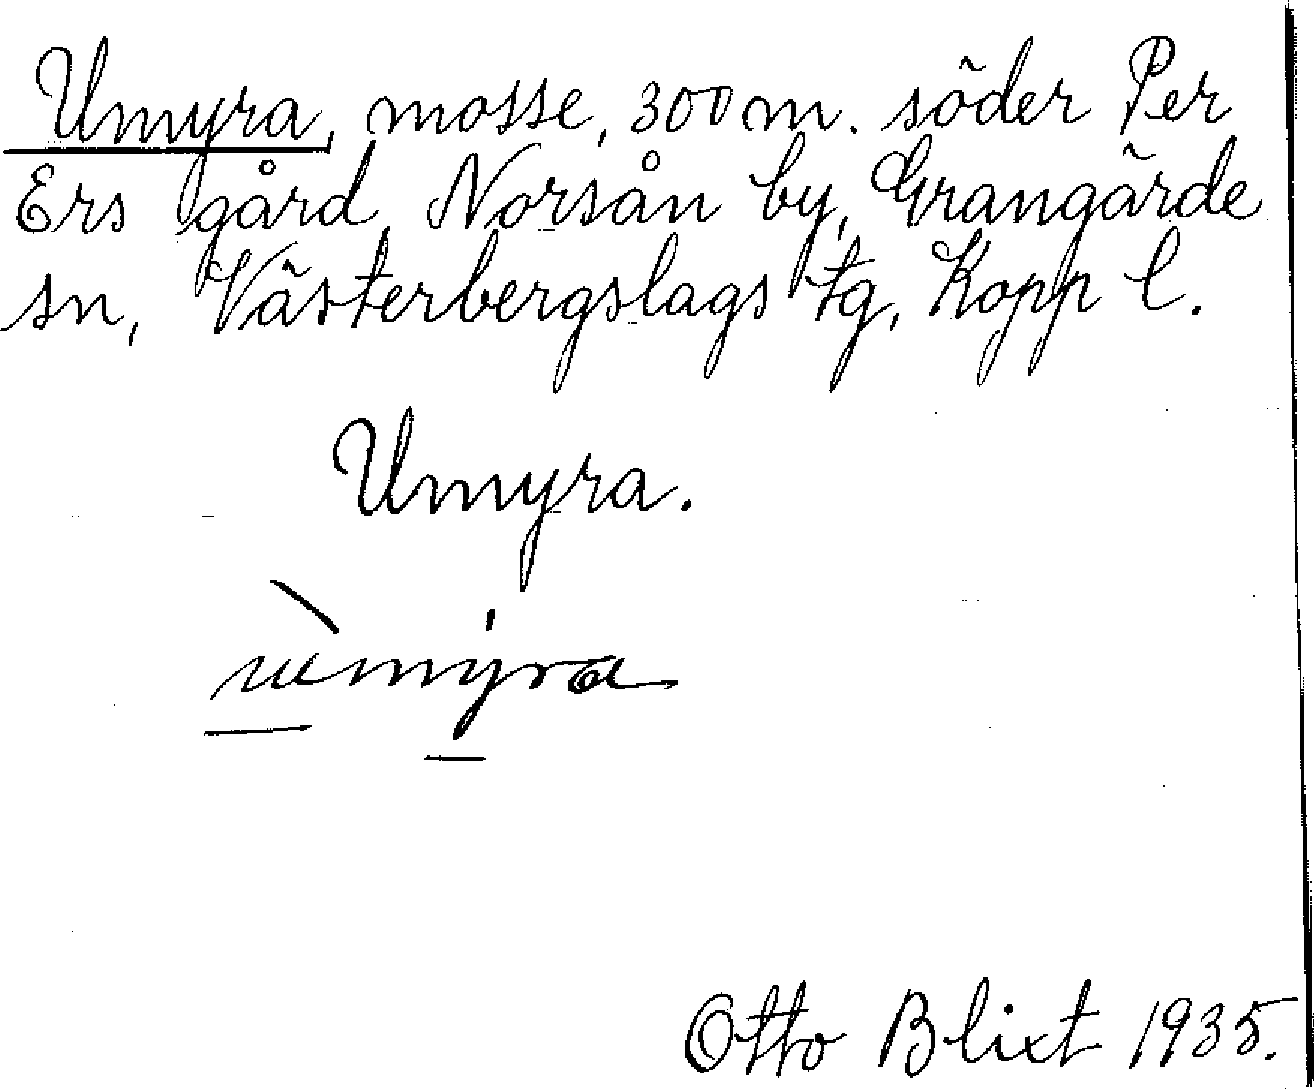 Umyra, mosse, 300 m. söder Per
Ers gård, Norsån by, Grangärde
sn, Västerbergslags tg, Kopp l.
Umyra.
ùmyra
Otto Blixt 1935.